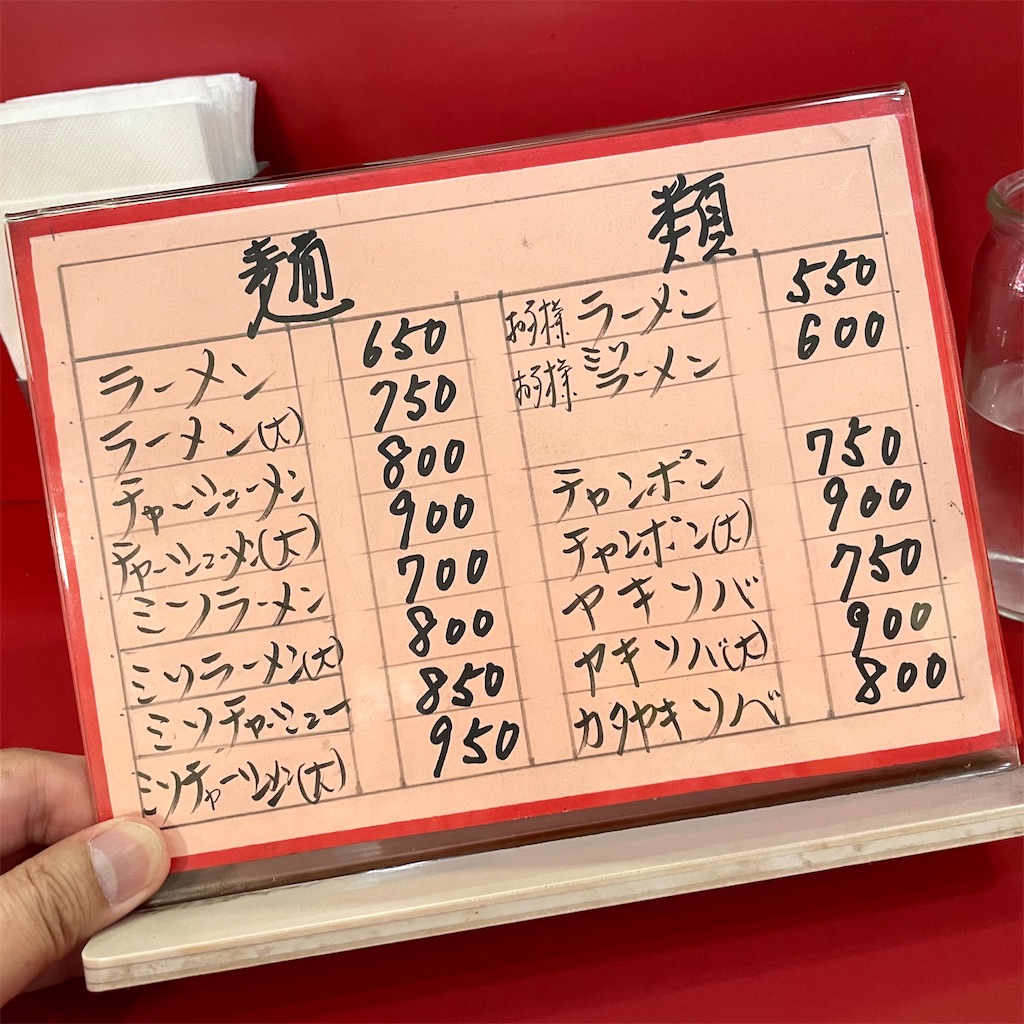 麺類
ラーメン 650
ラーメン(大) 750
チャーシューメン 800
チャーシューメン(大) 900
ミソラーメン 700
ミソラーメン(大) 800
ミソチャーシュー 850
ミソチャーシューメン(大) 950
お子様ラーメン 550
お子様ミソラーメン 600
チャンポン 750
チャンポン(大) 900
ヤキソバ 750
ヤキソバ(大) 900
カタヤキソバ 800